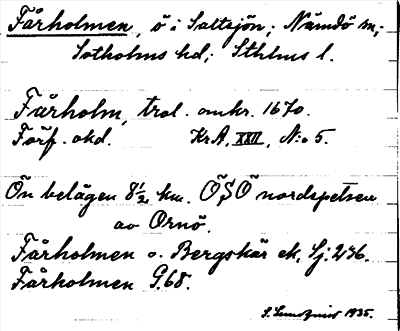 Fårholmen, ö i Saltsjön; Nämdö sn;
Sotholms hd; Sthlms l.
Fårholm, trol. omkr. 1670.
Förf. okd. Kr.A, XXII, N:o 5.
Ön belägen 8½ km. ÖSÖ nordspetsen
av Ornö.
Fårholmen o. Bergskär ek, Sj. 236.
Fårholmen G.68.
1935.